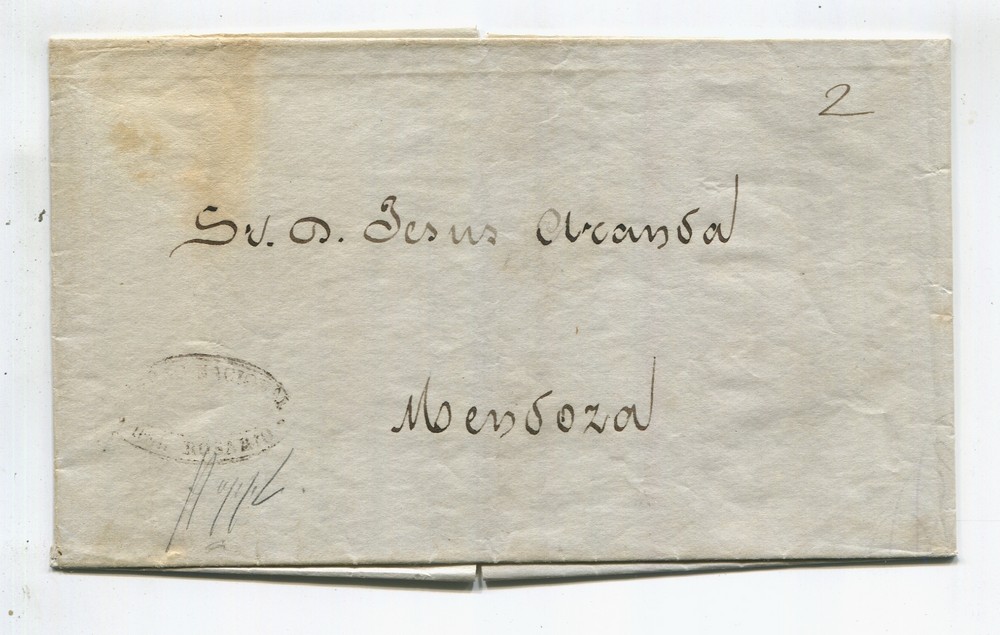 2
Sr. D. Jesus Aranda
Mendoza
NACIONAL
ROSARIO